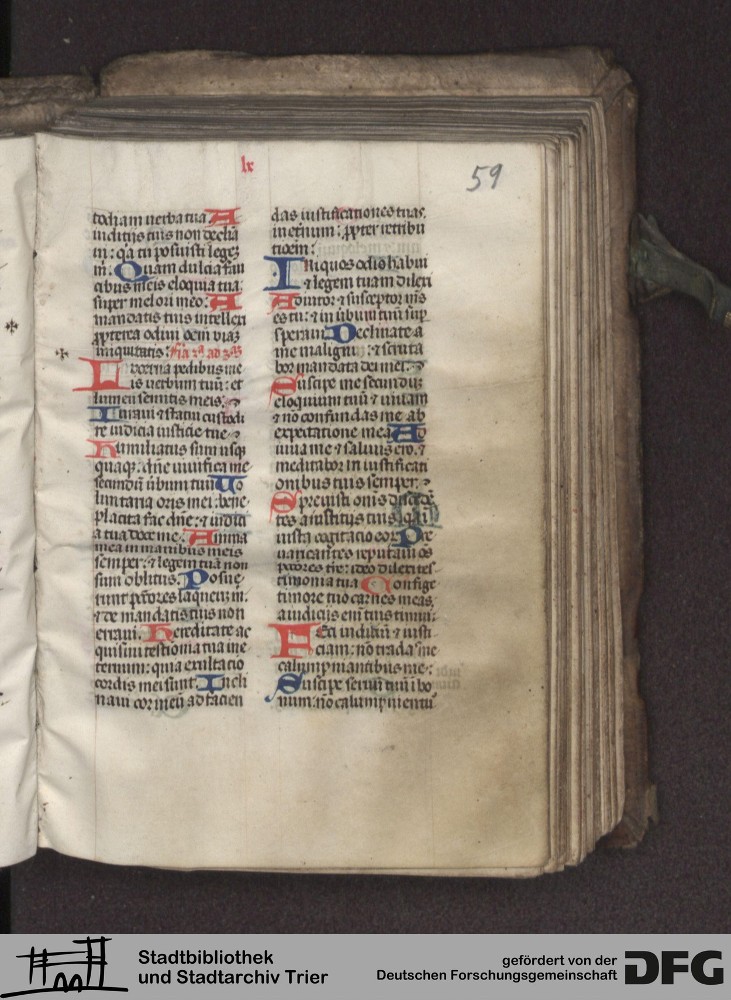 lx
59
todiam uerba tua A
iudiciis tuis non declia
ui: qa tu posuisti legez
m. Quam dulcia fau
cibus meis eloquia tua:
super mel ori meo: A
mandatis tuis intellexi
ppterea odiui oem uiaz
iniquitatis:
Lucerna pedibus me
is uerbum tuu: et
lumen semitis meis.
Iuraui & statui custodi
re iudicia iusticie tue
Humiliatus sum usqz
quaqz: dne uiuifica me
secundu ubum tuu Uo
luntaria oris mei: bene
placita fac dne: & iudici
a tua doce me. Anima
mea in manibus meis
semper: & legem tua non
sum oblitus. Posue
runt pctores laqueuz m:
& de mandatis tuis non
erraui. Hereditate ac
quisiui testimonia tua ine
ternum: quia exultacio
cordis mei sunt. Incli
naui cor meu ad facien
das iustificationes tuas.
in eternum: ppter retribu
tioem:
Iniquos odio habui
& legem tuam dilexi
Adiutor & susceptor ms
es tu: & in ubum tuu sup
speraui. Declinate a
me maligni: & scruta
bor mandata dei mei:
Suscipe me secunduz
eloquium tuu & uiuam
& no confundas me ab
expectatione mea Ad
iuua me & saluus ero. &
meditabor in iustificati
onibus tuis semper:
Spreuisti omis disceden
tes a iustitiis tuis: qa i
iusta cogitacio eor Pre
uaricantes reputaui os
pctores tre: ideo dilexi tes
timonia tua Confige
timore tuo carnes meas
a iudiciis eni tuis timui:
Feci iudiciu & iusti
ciam: no tradas me
calumpniantibus me:
Suscipe seruu tuu i bo
num: no calumpnientu
Stadtbibliothek
und Stadtarchiv Trier
gefördert von der
Deutschen Forschungsgemeinschaft
DFG